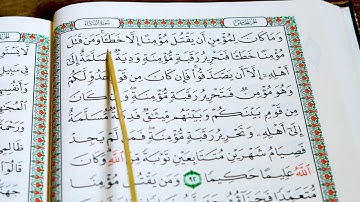 سُورَةُ النِّسَاءِ
وَمَا كَانَ لِمُؤْمِنٍ أَن يَقْتُلَ مُؤْمِنًا إِلَّا خَطَـًٔا وَمَن قَتَلَ
مُؤْمِنًا خَطَـًٔا فَتَحْرِيرُ رَقَبَةٍ مُّؤْمِنَةٍ وَدِيَةٌ مُّسَلَّمَةٌ إِلَىٰٓ
أَهْلِهِۦٓ إِلَّآ أَن يَصَّدَّقُوا۟ فَإِن كَانَ مِن قَوْمٍ عَدُوٍّ لَّكُمْ
وَهُوَ مُؤْمِنٌ فَتَحْرِيرُ رَقَبَةٍ مُّؤْمِنَةٍ وَإِن كَانَ
مِن قَوْمٍۭ بَيْنَكُمْ وَبَيْنَهُم مِّيثَٰقٌ فَدِيَةٌ مُّسَلَّمَةٌ
إِلَىٰٓ أَهْلِهِۦ وَتَحْرِيرُ رَقَبَةٍ مُّؤْمِنَةٍ فَمَن لَّمْ يَجِدْ
فَصِيَامُ شَهْرَيْنِ مُتَتَابِعَيْنِ تَوْبَةً مِّنَ ٱللَّهِ وَكَانَ
ٱللَّهُ عَلِيمًا حَكِيمًا ٩٢ وَمَن يَقْتُلْ مُؤْمِنًا
مُّتَعَمِّدًا فَجَزَآؤُهُۥ